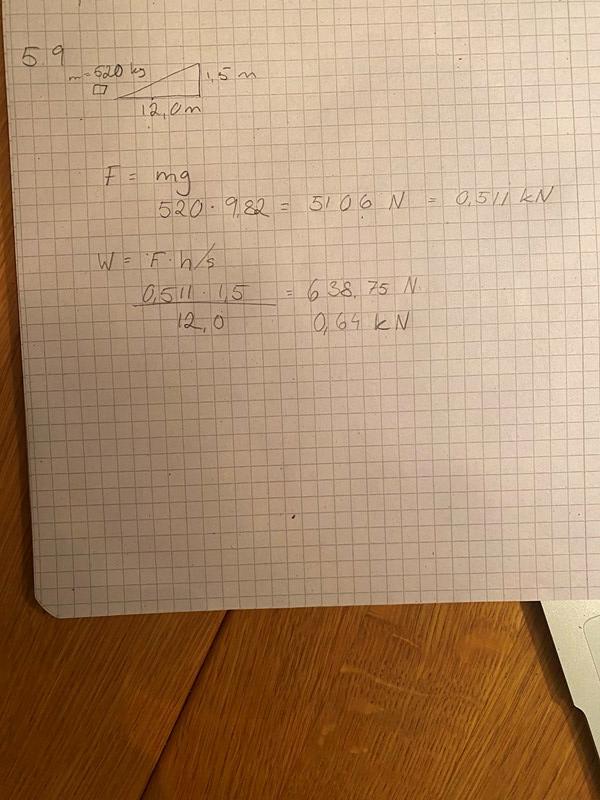 59
m=520 kg
1,5 m
12,0m
F = mg
520 · 9,82 = 5106 N = 0,511 kN
W = F·h/s
0,511 · 1,5 = 638,75 N
12,0 0,64 kN